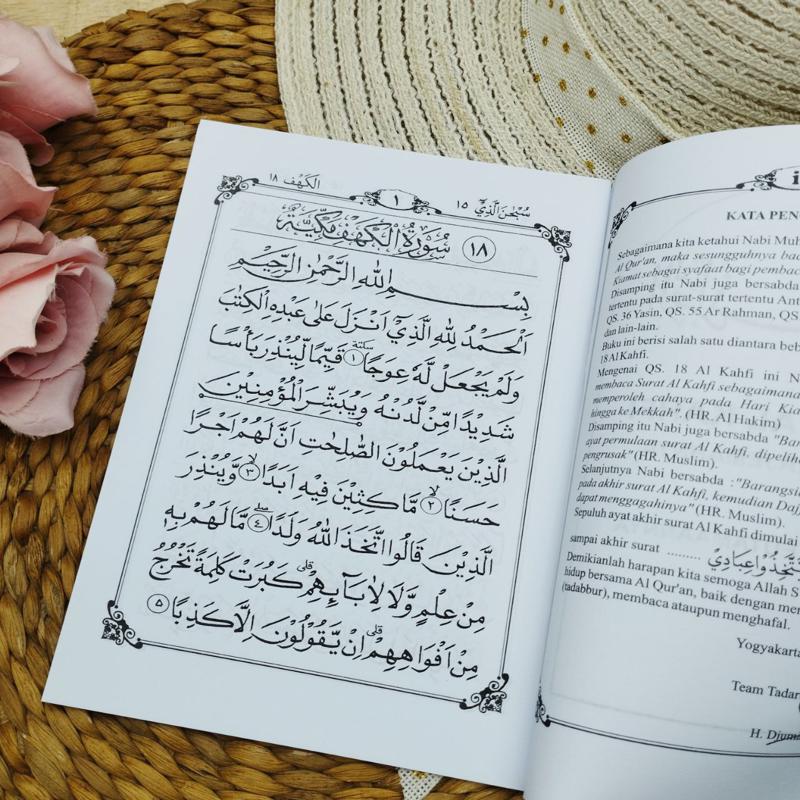 سُبْحٰنَ الَّذِيْ ١٥
١
الكهف ١٨
١٨ سُوْرَةُ الْكَهْفِ مَكِّيَّةٌ
بِسْمِ اللّٰهِ الرَّحْمٰنِ الرَّحِيْمِ
اَلْحَمْدُ لِلّٰهِ الَّذِيْٓ اَنْزَلَ عَلٰى عَبْدِهِ الْكِتٰبَ
وَلَمْ يَجْعَلْ لَّهٗ عِوَجًا ۜ ١ قَيِّمًا لِّيُنْذِرَ بَأْسًا
شَدِيْدًا مِّنْ لَّدُنْهُ وَيُبَشِّرَ الْمُؤْمِنِيْنَ
الَّذِيْنَ يَعْمَلُوْنَ الصّٰلِحٰتِ اَنَّ لَهُمْ اَجْرًا
حَسَنًا ٢ مَّاكِثِيْنَ فِيْهِ اَبَدًا ٣ وَّيُنْذِرَ
الَّذِيْنَ قَالُوا اتَّخَذَ اللّٰهُ وَلَدًا ٤ مَا لَهُمْ بِهٖ
مِنْ عِلْمٍ وَّلَا لِاٰبَآىِٕهِمْ ۗ كَبُرَتْ كَلِمَةً تَخْرُجُ
مِنْ اَفْوَاهِهِمْ ۗ اِنْ يَّقُوْلُوْنَ اِلَّا كَذِبًا ٥
KATA PEN
Sebagaimana kita ketahui Nabi Muh
Al Qur'an, maka sesungguhnya bac
Kiamat sebagai syafaat bagi pembac
Disamping itu Nabi juga bersabda
tertentu pada surat-surat tertentu Ant
QS. 36 Yasin, QS. 55 Ar Rahman, QS
dan lain-lain.
Buku ini berisi salah satu diantara beb
18 Al Kahfi.
Mengenai QS. 18 Al Kahfi ini N
membaca Surat Al Kahfi sebagaimana
memperoleh cahaya pada Hari Kia
hingga ke Mekkah". (HR. Al Hakim)
Disamping itu Nabi juga bersabda "Bara
ayat permulaan surat Al Kahfi, dipelih
pengrusak" (HR. Muslim).
Selanjutnya Nabi bersabda : "Barangsi
pada akhir surat Al Kahfi, kemudian Daj
dapat menggagahinya" (HR. Muslim).
Sepuluh ayat akhir surat Al Kahfi dimulai
sampai akhir surat ......... يَتَّخِذُوْا عِبَادِيْ
Demikianlah harapan kita semoga Allah S
hidup bersama Al Qur'an, baik dengan mem
(tadabbur), membaca ataupun menghafal.
Yogyakarta
Team Tadar
H. Djuma